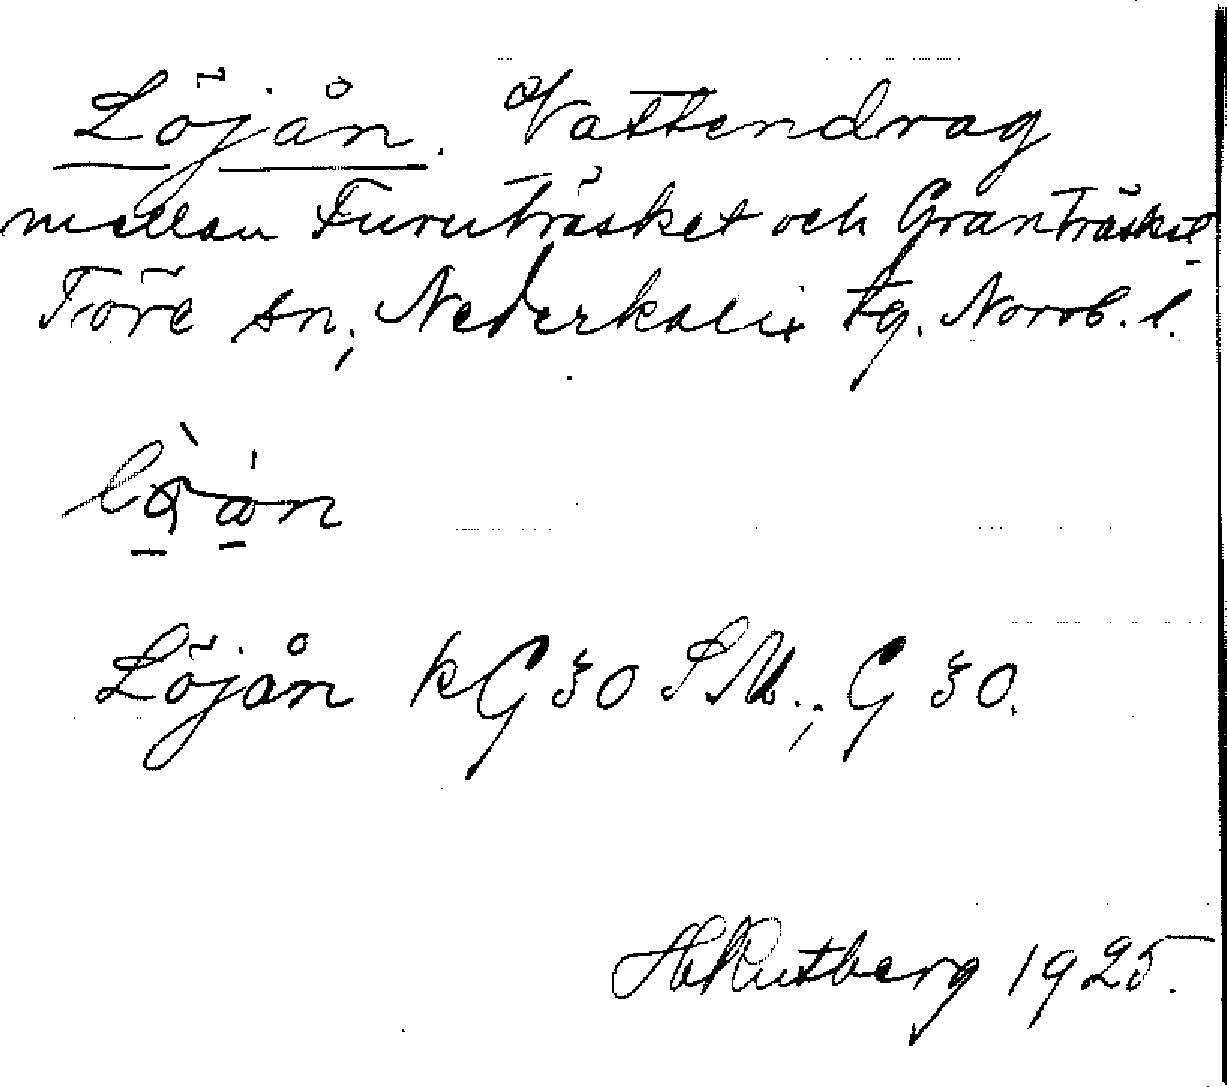 Löjån. Vattendrag
mellan Furuträsket och Granträsket
Töre sn, Nederkalix tg. Norrb. l.
Löjån kG 30 S.M., G 30.
H Rutberg 1925.